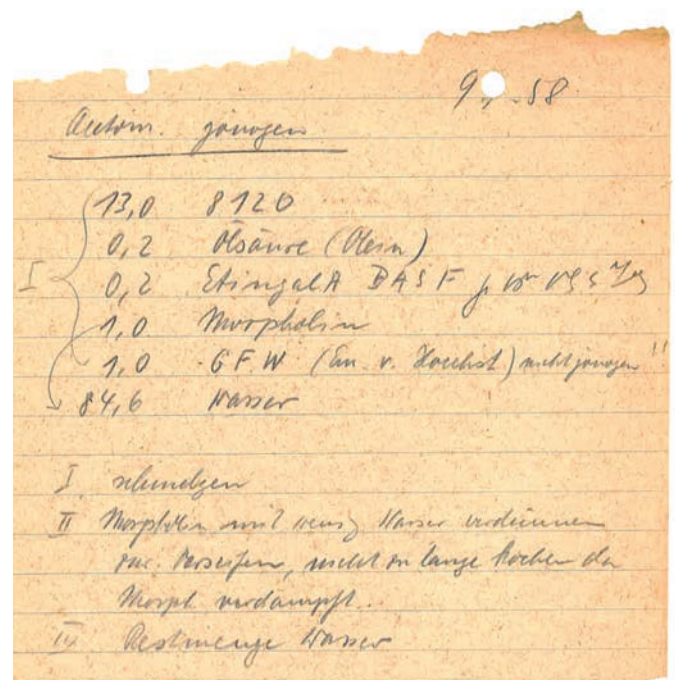 9. -58
Autom. jonogen
13,0 8120
0,2 Ölsäure (Olein)
I 0,2 Etingal A BASF
1,0 Morpholin
1,0 GFW (Em. v. Hoechst) nicht jonogen!!
84,6 Wasser
I schmelzen
II Morpholin mit wenig Wasser verdünnen
zur. Verseifen, nicht zu lange kochen da
Morph. verdampft.
III Restmenge Wasser